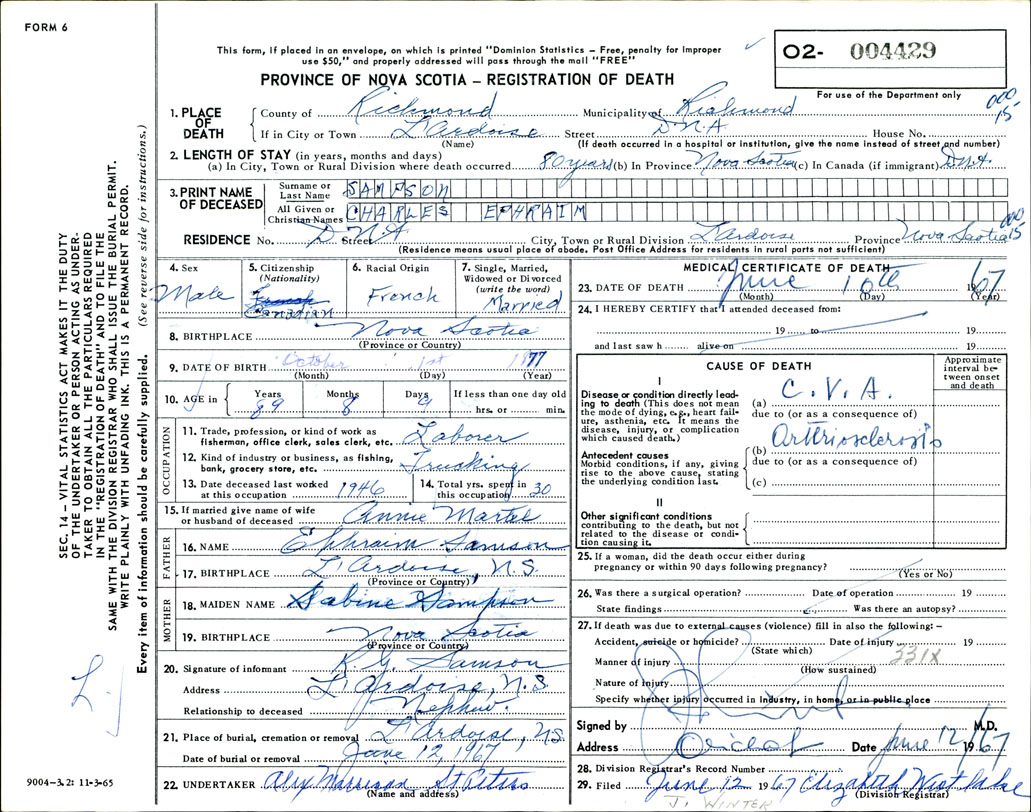 FORM 6
This form, if placed in an envelope, on which is printed "Dominion Statistics – Free, penalty for improper
use $50," and properly addressed will pass through the mail "FREE"
PROVINCE OF NOVA SCOTIA – REGISTRATION OF DEATH
O2- 004429
For use of the Department only
000
15
1. PLACE OF DEATH
County of Richmond Municipality of Richmond
If in City or Town L'Ardoise Street D.N.A House No.
(Name) (If death occurred in a hospital or institution, give the name instead of street and number)
2. LENGTH OF STAY (in years, months and days)
(a) In City, Town or Rural Division where death occurred 80 years (b) In Province Nova Scotia (c) In Canada (if immigrant) D.N.A.
3. PRINT NAME OF DECEASED
Surname or Last Name SAMPSON
All Given or Christian Names CHARLES EPHRAIM
000
15
RESIDENCE No. D.N.A Street City, Town or Rural Division L'Ardoise Province Nova Scotia
(Residence means usual place of abode. Post Office Address for residents in rural parts not sufficient)
4. Sex Male
5. Citizenship (Nationality) French Canadian
6. Racial Origin French
7. Single, Married, Widowed or Divorced (write the word) Married
8. BIRTHPLACE Nova Scotia
(Province or Country)
9. DATE OF BIRTH October 1st 1877
(Month) (Day) (Year)
10. AGE in Years 89 Months 8 Days 9 If less than one day old
hrs. or min.
OCCUPATION
11. Trade, profession, or kind of work as
fisherman, office clerk, sales clerk, etc. Laborer
12. Kind of industry or business, as fishing,
bank, grocery store, etc. Trucking
13. Date deceased last worked
at this occupation 1946
14. Total yrs. spent in
this occupation 30
15. If married give name of wife
or husband of deceased Annie Martel
FATHER
16. NAME Ephraim Samson
17. BIRTHPLACE L'Ardoise, N.S.
(Province or Country)
MOTHER
18. MAIDEN NAME Sabine Sampson
19. BIRTHPLACE Nova Scotia
(Province or Country)
20. Signature of informant R.G. Samson
Address L'Ardoise, N.S.
Relationship to deceased Nephew.
21. Place of burial, cremation or removal L'Ardoise, N.S.
Date of burial or removal June 12, 1967
22. UNDERTAKER St Peters
(Name and address)
MEDICAL CERTIFICATE OF DEATH
23. DATE OF DEATH June 10th 1967
(Month) (Day) (Year)
24. I HEREBY CERTIFY that I attended deceased from:
19 to 19
and last saw h alive on 19
CAUSE OF DEATH
Approximate interval between onset and death
I
Disease or condition directly leading
to death (This does not mean
the mode of dying, e.g., heart failure,
asthenia, etc. It means the
disease, injury, or complication
which caused death.)
(a) C.V.A.
due to (or as a consequence of)
Antecedent causes
Morbid conditions, if any, giving
rise to the above cause, stating
the underlying condition last.
(b) Arteriosclerosis
due to (or as a consequence of)
(c)
II
Other significant conditions
contributing to the death, but not
related to the disease or condition
causing it.
25. If a woman, did the death occur either during
pregnancy or within 90 days following pregnancy?
(Yes or No)
26. Was there a surgical operation? Date of operation 19
State findings Was there an autopsy?
27. If death was due to external causes (violence) fill in also the following: –
Accident, suicide or homicide? Date of injury 19
(State which)
331X
Manner of injury
(How sustained)
Nature of injury
Specify whether injury occurred in industry, in home, or in public place
Signed by M.D.
Address Date June 12 1967
28. Division Registrar's Record Number
29. Filed June 12 1967 Elizabeth
(Division Registrar)
J. WINTER
SEC. 14 – VITAL STATISTICS ACT MAKES IT THE DUTY
OF THE UNDERTAKER OR PERSON ACTING AS UNDERTAKER
TO OBTAIN ALL THE PARTICULARS REQUIRED
IN THE "REGISTRATION OF DEATH" AND TO FILE THE
SAME WITH THE DIVISION REGISTRAR WHO SHALL ISSUE THE BURIAL PERMIT.
WRITE PLAINLY WITH UNFADING INK. THIS IS A PERMANENT RECORD.
Every item of information should be carefully supplied. (See reverse side for instructions.)
L.
9004-3.2: 11-3-65